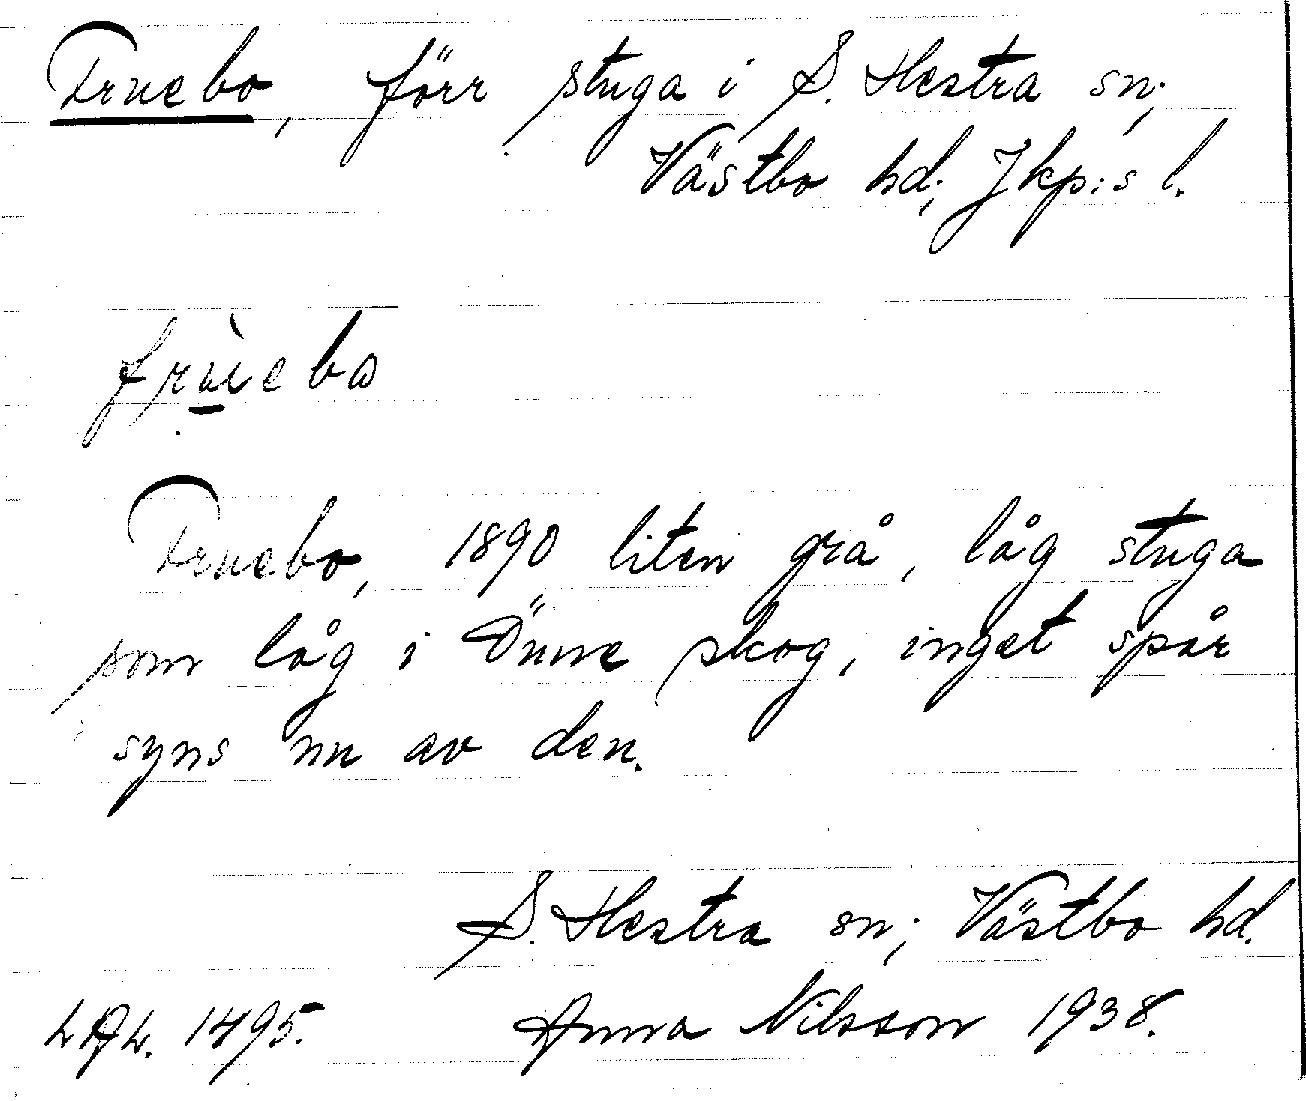 Fruebo, förr stuga i S. Hestra sn;
Västbo hd; Jkp:s l.
frùebo
Fruebo, 1890 liten grå, låg stuga
som låg i Önne skog, inget spår
syns nu av den.
S. Hestra sn; Västbo hd.
1495. Anna Nilsson 1938.